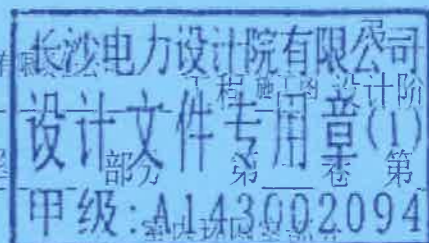 长沙电力设计院有限公司
工程 施工图 设计阶
设计文件专用章(1)
部分 第 卷 第
甲级:A143002094